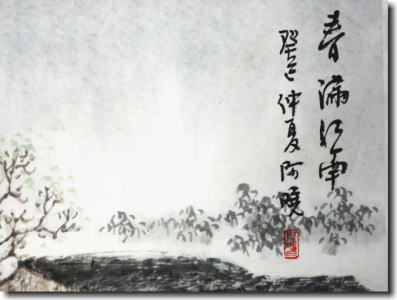 春滿江南
癸巳仲夏阿曉